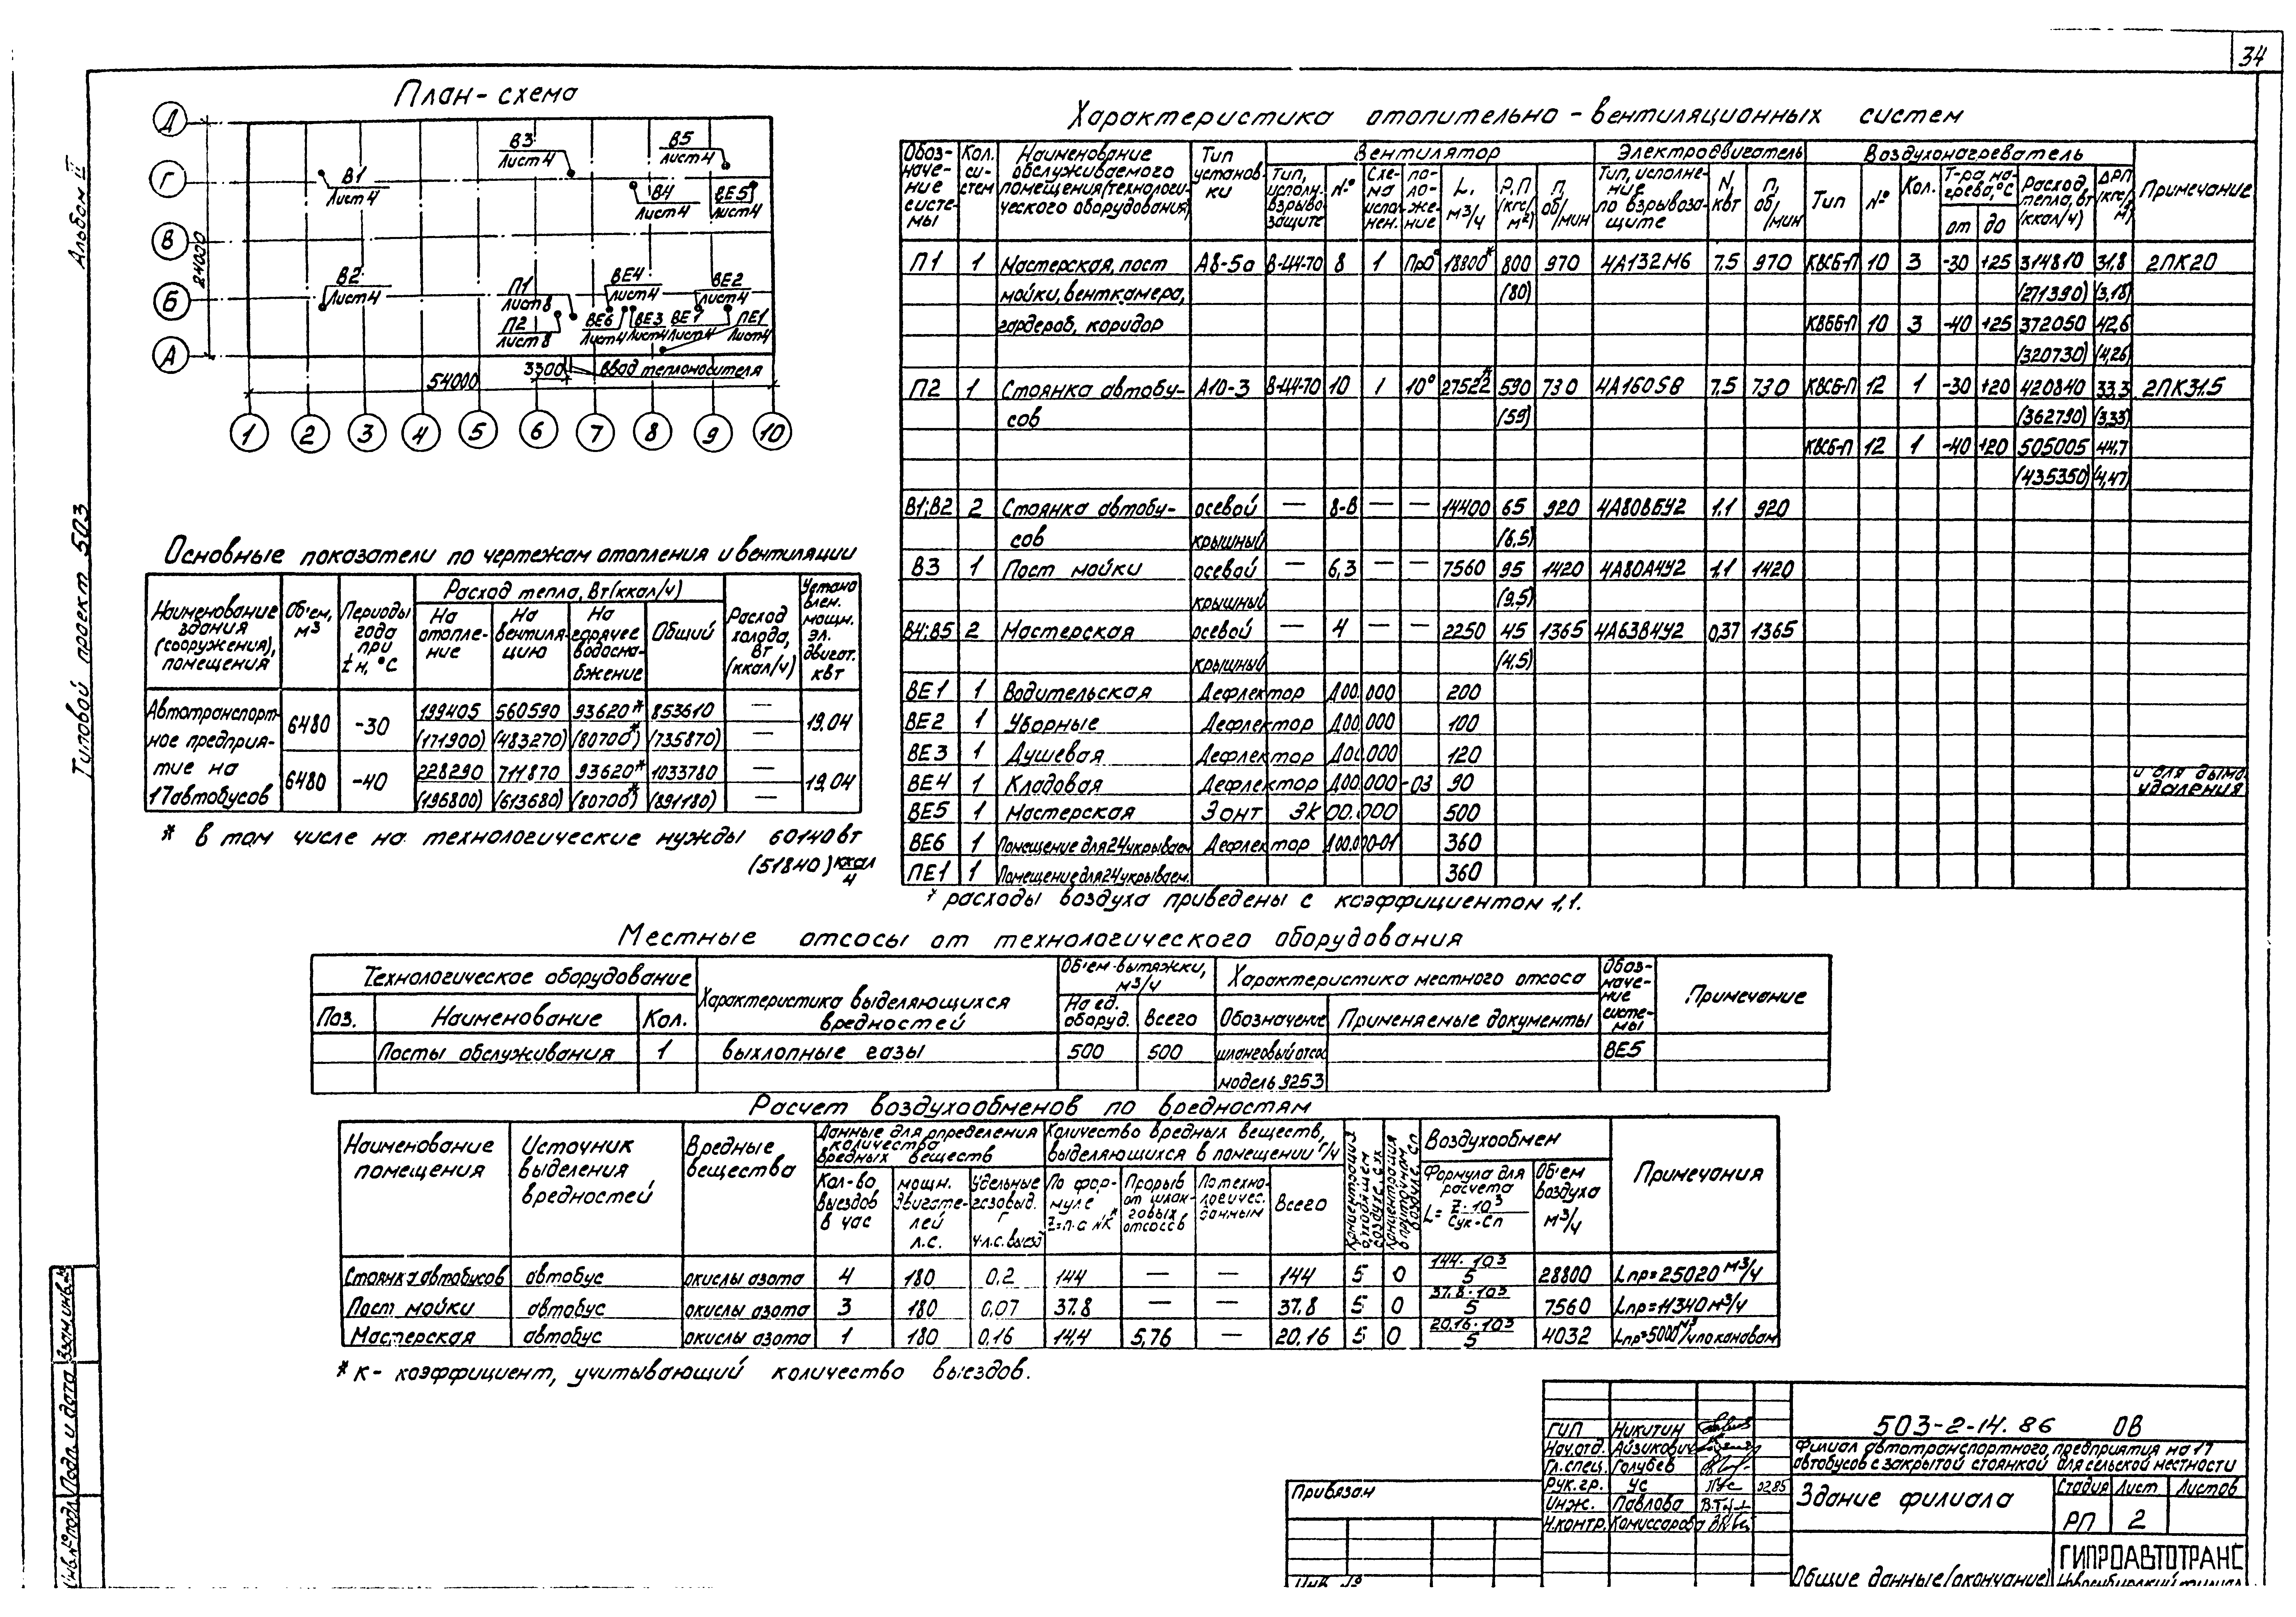 34
Альбом II
Типовой проект 503
План-схема
Д
Г
В
Б
А
24000
В1
Лист 4
В3
Лист 4
В5
Лист 4
В4
Лист 4
ВЕ5
Лист 4
В2
Лист 4
П1
Лист 8
П2
Лист 8
ВЕ4
Лист 4
ВЕ2
Лист 4
ВЕ6
Лист 4
ВЕ3
Лист 4
ВЕ1
Лист 4
ПЕ1
Лист 4
3300
Ввод теплоносителя
54000
1 2 3 4 5 6 7 8 9 10
Характеристика отопительно-вентиляционных систем
Обозначение системы
Кол. систем
Наименование обслуживаемого помещения (технологического оборудования)
Тип установки
Вентилятор
Тип, исполн. взрывозащите
№
Схема исполнен.
положение
L, м3/ч
Р, П (кгс/м2)
п, об/мин
Электродвигатель
Тип, исполнение по взрывозащите
N, квт
п, об/мин
Воздухонагреватель
Тип
№
Кол.
Т-ра нагрева, °С
от до
Расход тепла, вт (ккал/ч)
ΔР, П (кгс/м2)
Примечание
П1 1 Мастерская, пост А8-5а В-Ц4-70 8 1 Пр0° 18800* 800 970 4А132М6 7.5 970 КВСБ-П 10 3 -30 +25 314810 31,8 2ПК20
мойки, венткамера, (80) (271390) (3,18)
гардероб, коридор КВББ-П 10 3 -40 +25 372050 42,6
(320730) (4,26)
П2 1 Стоянка автобу- А10-3 В-Ц4-70 10 1 Л0° 27522* 590 730 4А160S8 7,5 730 КВСБ-П 12 1 -30 +20 420840 33,3 2ПК31.5
сов (59) (362790) (3,33)
КВСБ-П 12 1 -40 +20 505005 44,7
(435350) (4,47)
В1;В2 2 Стоянка автобу- осевой — 8-В — — 14400 65 920 4А80В6У2 1.1 920
сов крышный (6,5)
В3 1 Пост мойки осевой — 6,3 — — 7560 95 1420 4А80А4У2 1,1 1420
крышный (9,5)
В4;В5 2 Мастерская осевой — 4 — — 2250 45 1365 4А63В4У2 0,37 1365
крышный (4,5)
ВЕ1 1 Водительская Дефлектор Д00.000 200
ВЕ2 1 Уборные Дефлектор Д00.000 100
ВЕ3 1 Душевая Дефлектор Д00.000 120
ВЕ4 1 Кладовая Дефлектор Д00.000-03 90 и для дымоудаления
ВЕ5 1 Мастерская Зонт ЗК 00.000 500
ВЕ6 1 Помещение для 24 укрываем. Дефлектор Д00.000-01 360
ПЕ1 1 Помещение для 24 укрываем. 360
* расходы воздуха приведены с коэффициентом 1,1.
Основные показатели по чертежам отопления и вентиляции
Наименование здания (сооружения), помещения
Об'ем, м3
Периоды года при tн, °С
Расход тепла, Вт (ккал/ч)
На отопление
На вентиляцию
На горячее водоснабжение
Общий
Расход холода, Вт (ккал/ч)
Установлен. мощн. эл. двигат. квт
Автотранспорт- 6480 -30 199405 560590 93620* 853610 — 19,04
ное предприя- (171900) (483270) (80700*) (735870) —
тие на 6480 -40 228290 711870 93620* 1033780 — 19,04
17 автобусов (196800) (613680) (80700*) (891180) —
* в том числе на технологические нужды 60140 вт
(51840) ккал/ч
Местные отсосы от технологического оборудования
Технологическое оборудование
Поз.
Наименование
Кол.
Характеристика выделяющихся вредностей
Об'ем вытяжки, м3/ч
На ед. оборуд.
Всего
Характеристика местного отсоса
Обозначение
Применяемые документы
Обозначение системы
Примечание
Посты обслуживания 1 выхлопные газы 500 500 шланговый отсос ВЕ5
модель 9253
Расчет воздухообменов по вредностям
Наименование помещения
Источник выделения вредностей
Вредные вещества
Данные для определения количества вредных веществ
Кол-во выездов в час
мощн. двигателей л.с.
Удельные газовыд. г ч.л.с. выезд
Количество вредных веществ, выделяющихся в помещении г/ч
По формуле Z=п·а·N·К*
Прорыв от шланговых отсосов
По технологичес. данным
Всего
Концентрация в уходящем воздухе, Сух
Концентрация в приточном воздухе, Сп
Воздухообмен
Формула для расчета
L= Z·10³ / Сук-Сп
Об'ем воздуха м3/ч
Примечания
Стоянка автобусов автобус окислы азота 4 180 0,2 144 — — 144 5 0 144·10³/5 28800 Lпр=25020 м3/ч
Пост мойки автобус окислы азота 3 180 0,07 37.8 — — 37,8 5 0 37,8·10³/5 7560 Lпр=11340 м3/ч
Мастерская автобус окислы азота 1 180 0,16 14,4 5,76 — 20,16 5 0 20,16·10³/5 4032 Lпр=5000 м3/ч по канавам
* К - коэффициент, учитывающий количество выездов.
Взам. инв. №
Подп. и дата
Инв. № подл.
Привязан
Инв. №
ГИП Никитин
Нач. отд. Айзикович
Гл. спец. Голубев
Рук. гр. Ус 02.85
Инж. Павлова
Н. контр. Комиссарова
503-2-14.86 ОВ
Филиал автотранспортного предприятия на 17
автобусов с закрытой стоянкой для сельской местности
Здание филиала
Стадия Лист Листов
РП 2
Общие данные (окончание)
ГИПРОАВТОТРАНС
Новосибирский филиал